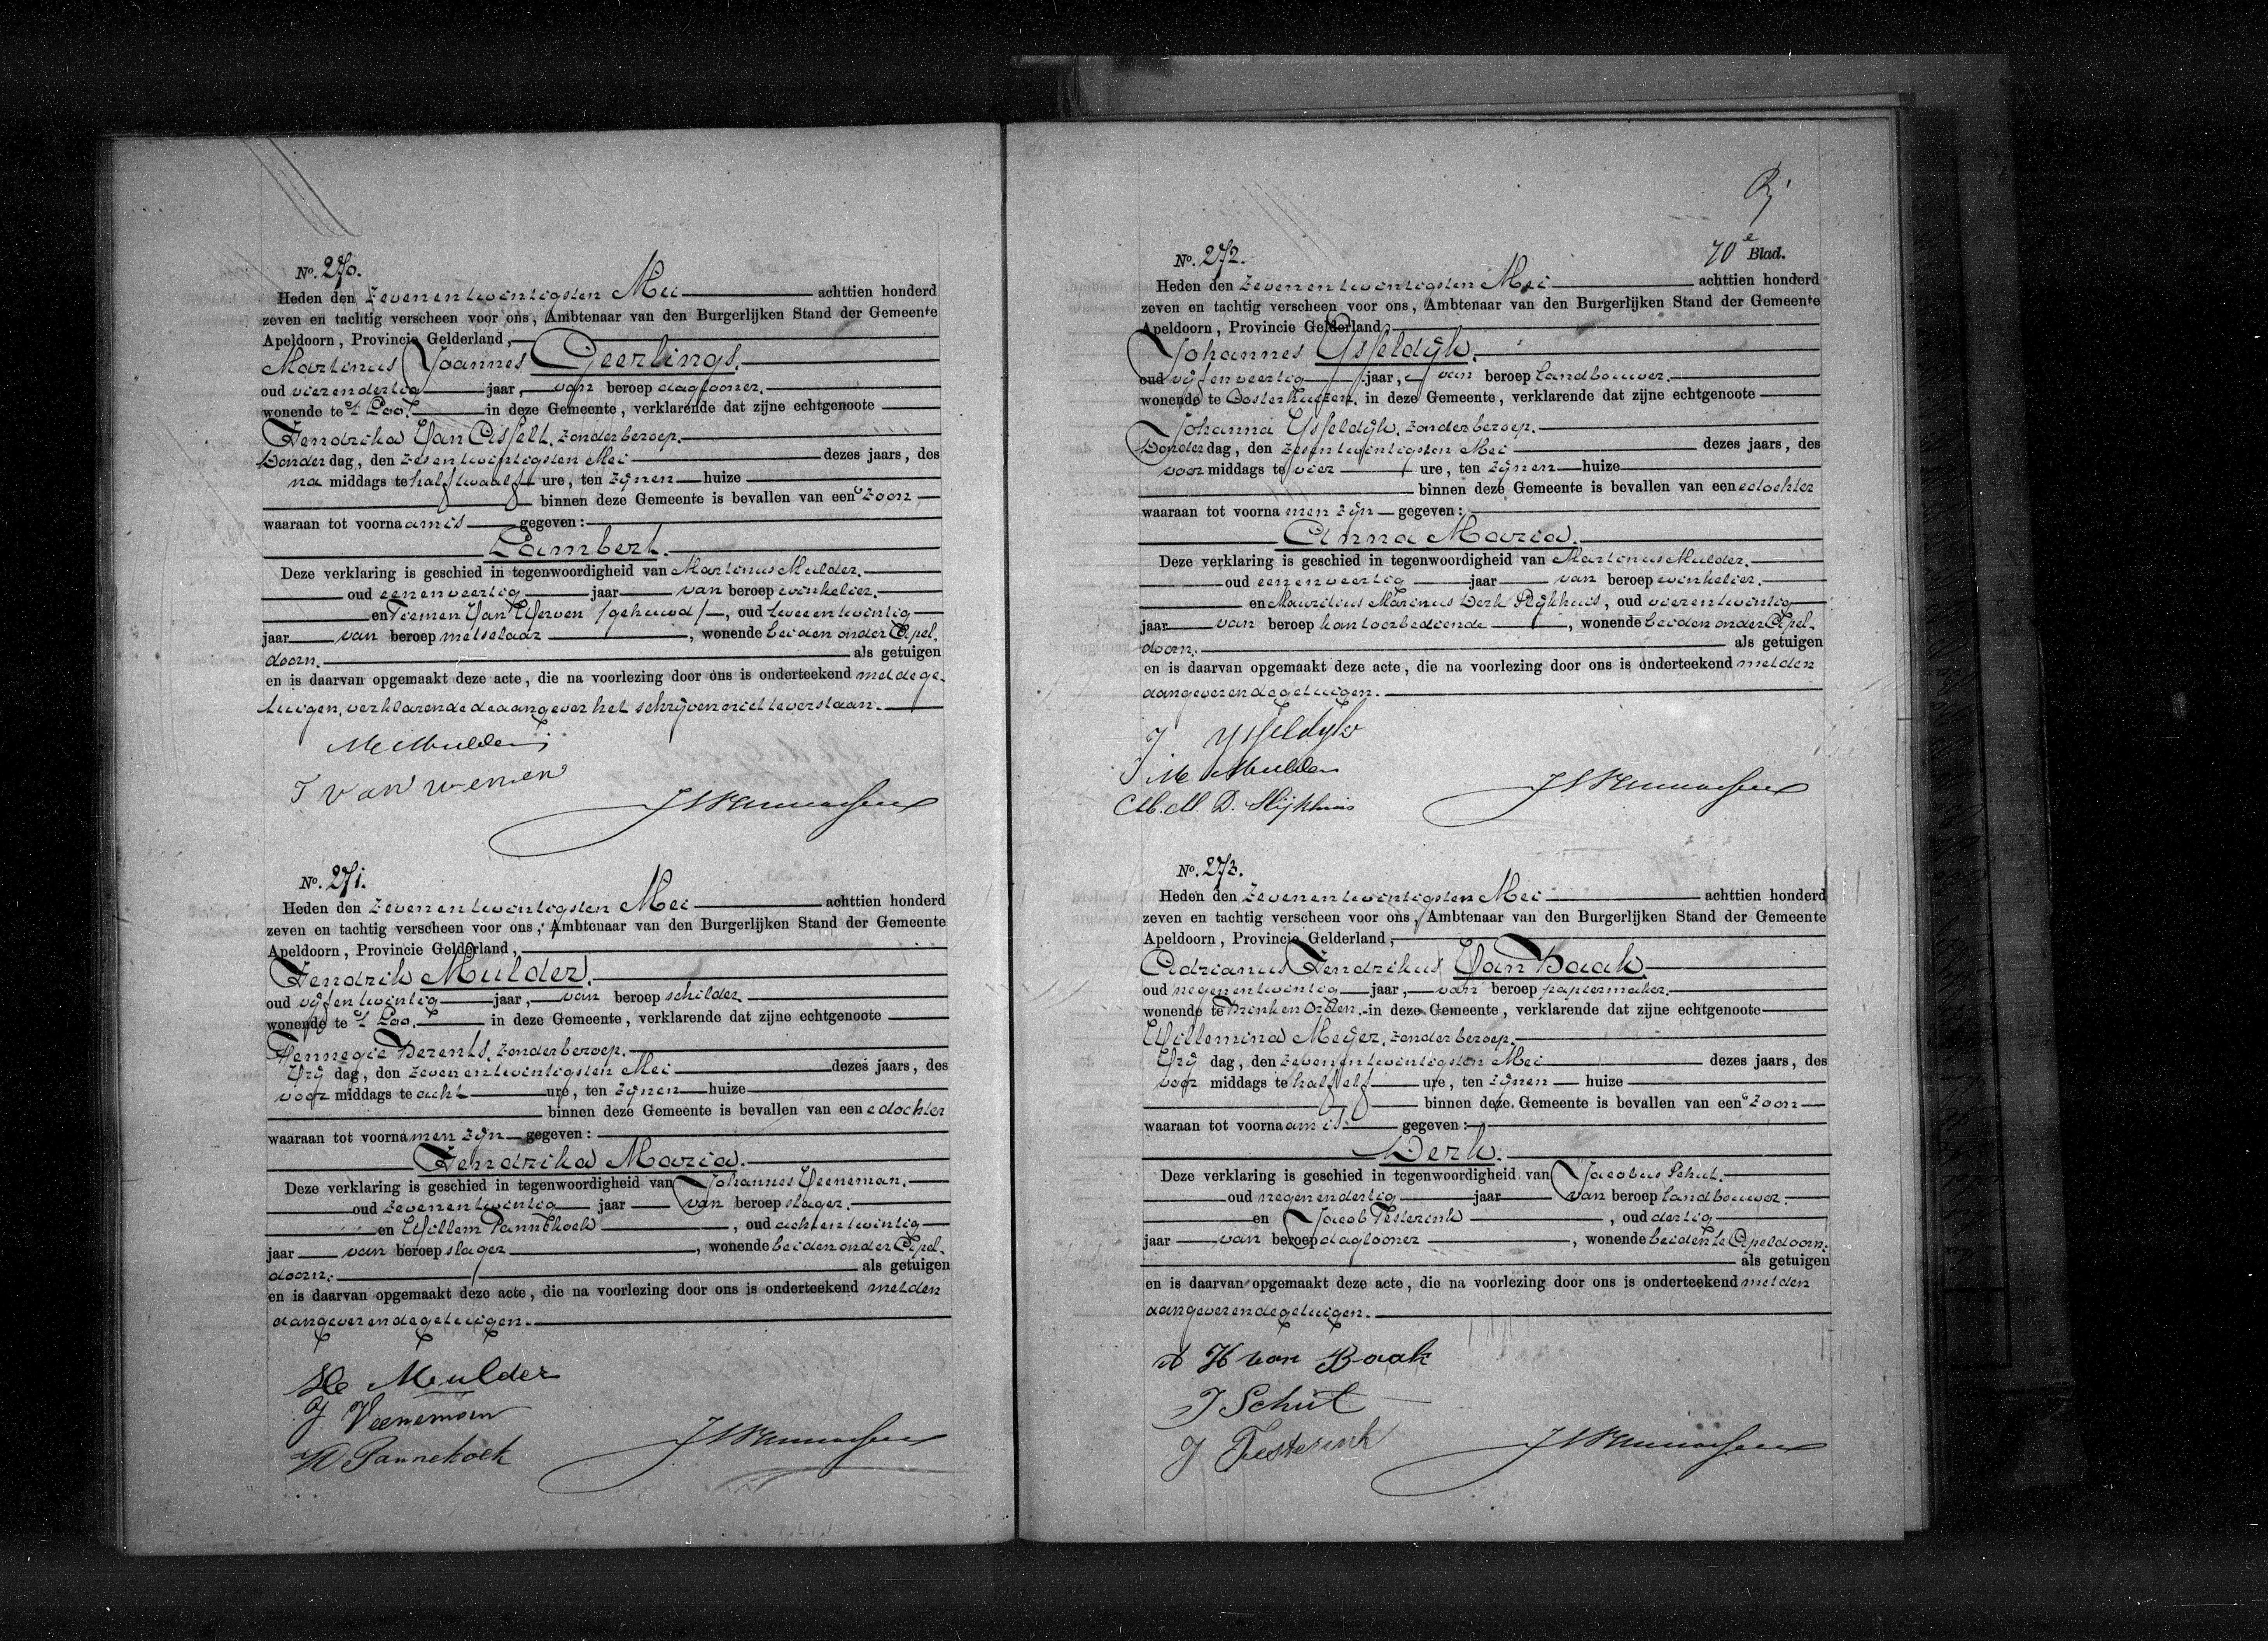 No. 270.
Heden den zevenentwintigsten Mei achttien honderd
zeven en tachtig verscheen voor ons, Ambtenaar van den Burgerlijken Stand der Gemeente
Apeldoorn, Provincie Gelderland,
Martinus Joannes Geerlings.
oud vierendertig jaar, van beroep daglooner.
wonende te 't Loo. in deze Gemeente, verklarende dat zijne echtgenoote
Hendrika Van Asselt, zonder beroep.
Donderdag, den zesentwintigsten Mei dezes jaars, des
na middags te half twaalf ure, ten zijnen huize
binnen deze Gemeente is bevallen van een zoon
waaraan tot voornaam is gegeven:
Lambert.
Deze verklaring is geschied in tegenwoordigheid van Martinus Mulder.
oud eenenveertig jaar van beroep winkelier.
en Tiemen Van Werven /gehuwd/, oud tweeentwintig
jaar van beroep metselaar, wonende beiden onder Apel-
doorn. als getuigen
en is daarvan opgemaakt deze acte, die na voorlezing door ons is onderteekend met de ge-
tuigen, verklarende de aangever het schrijven niet te verstaan.
M Mulder
T van werven
No. 271.
Heden den zevenentwintigsten Mei achttien honderd
zeven en tachtig verscheen voor ons, Ambtenaar van den Burgerlijken Stand der Gemeente
Apeldoorn, Provincie Gelderland,
Hendrik Mulder.
oud vijfentwintig jaar, van beroep schilder.
wonende te 't Loo. in deze Gemeente, verklarende dat zijne echtgenoote
Hennegie Berents, zonder beroep.
Vrij dag, den zevenentwintigsten Mei dezes jaars, des
voor middags te acht ure, ten zijnen huize
binnen deze Gemeente is bevallen van eene dochter
waaraan tot voornamen zijn gegeven:
Hendrika Maria.
Deze verklaring is geschied in tegenwoordigheid van Johannes Veeneman.
oud zevenentwintig jaar van beroep slager.
en Willem Pannekoek, oud achtentwintig
jaar van beroep slager, wonende beiden onder Apel-
doorn. als getuigen
en is daarvan opgemaakt deze acte, die na voorlezing door ons is onderteekend met den
aangever en de getuigen.
H Mulder
J Veeneman
W Pannekoek
70e Blad.
No. 272.
Heden den zevenentwintigsten Mei achttien honderd
zeven en tachtig verscheen voor ons, Ambtenaar van den Burgerlijken Stand der Gemeente
Apeldoorn, Provincie Gelderland,
Johannes Ysseldijk.
oud vijfenveertig jaar, van beroep landbouwer.
wonende te Oosterhuizen. in deze Gemeente, verklarende dat zijne echtgenoote
Johanna Ysseldijk, zonder beroep.
Donderdag, den zesentwintigsten Mei dezes jaars, des
voor middags te vier ure, ten zijnen huize
binnen deze Gemeente is bevallen van eene dochter
waaraan tot voornamen zijn gegeven:
Anna Maria.
Deze verklaring is geschied in tegenwoordigheid van Martinus Mulder.
oud eenenveertig jaar van beroep winkelier.
en Mauritius Marinus Derk Slijkhuis, oud vierentwintig
jaar van beroep kantoorbediende, wonende beiden onder Apel-
doorn. als getuigen
en is daarvan opgemaakt deze acte, die na voorlezing door ons is onderteekend met den
aangever en de getuigen.
J Ysseldijk
M Mulder
M. M. D. Slijkhuis
No. 273.
Heden den zevenentwintigsten Mei achttien honderd
zeven en tachtig verscheen voor ons, Ambtenaar van den Burgerlijken Stand der Gemeente
Apeldoorn, Provincie Gelderland,
Adrianus Hendrikus Van Baak.
oud negenentwintig jaar, van beroep papiermaker.
wonende te Brink en Orden. in deze Gemeente, verklarende dat zijne echtgenoote
Willemina Meijer, zonder beroep.
Vrij dag, den zevenentwintigsten Mei dezes jaars, des
voor middags te half elf ure, ten zijnen huize
binnen deze Gemeente is bevallen van een zoon
waaraan tot voornaam is gegeven:
Derk.
Deze verklaring is geschied in tegenwoordigheid van Jacobus Schut.
oud negenendertig jaar van beroep landbouwer.
en Jacob Testerink, oud dertig
jaar van beroep daglooner, wonende beiden te Apeldoorn.
als getuigen
en is daarvan opgemaakt deze acte, die na voorlezing door ons is onderteekend met den
aangever en de getuigen.
A H van Baak
J Schut
J Testerink